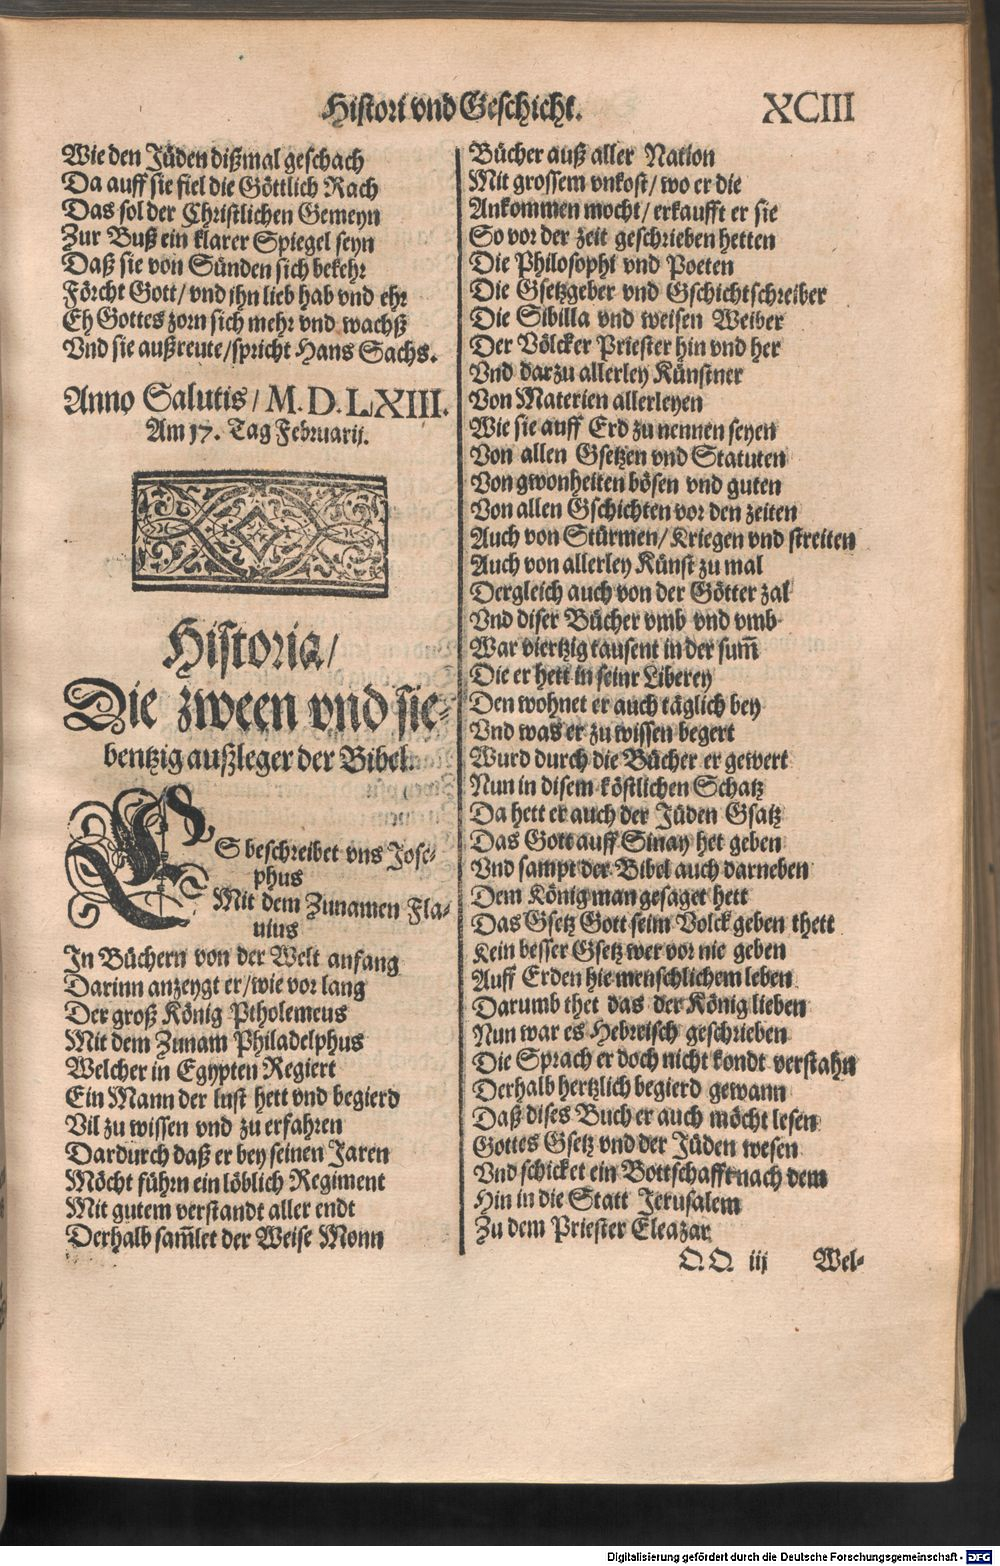 Histori vnd Geschicht. XCIII
Wie den Jüden dißmal geschach
Da auff sie fiel die Göttlich Rach
Das sol der Christlichen Gemeyn
Zur Buß ein klarer Spiegel seyn
Daß sie von Sünden sich bekehr
Förcht Gott/ vnd ihn lieb hab vnd ehr
Eh Gottes zorn sich mehr vnd wachß
Vnd sie außreute/ spricht Hans Sachs.
Anno Salutis/ M. D. LXIII.
Am 17. Tag Februarij.
Historia/
Die zween vnd sie-
bentzig außleger der Bibel.
ES beschreibet vns Jose-
phus
Mit dem Zunamen Fla-
uius
In Büchern von der Welt anfang
Darinn anzeygt er/ wie vor lang
Der groß König Ptholemeus
Mit dem Zunam Philadelphus
Welcher in Egypten Regiert
Ein Mann der lust hett vnd begierd
Vil zu wissen vnd zu erfahren
Dardurch daß er bey seinen Jaren
Möcht führn ein löblich Regiment
Mit gutem verstandt aller endt
Derhalb sam̃let der Weise Monn
Bücher auß aller Nation
Mit grossem vnkost/ wo er die
Ankommen mocht/ erkaufft er sie
So vor der zeit geschrieben hetten
Die Philosophi vnd Poeten
Die Gsetzgeber vnd Gschichtschreiber
Die Sibilla vnd weisen Weiber
Der Völcker Priester hin vnd her
Vnd darzu allerley Künstner
Von Materien allerleyen
Wie sie auff Erd zu nennen seyen
Von allen Gsetzen vnd Statuten
Von gwonheiten bösen vnd guten
Von allen Gschichten vor den zeiten
Auch von Stürmen/ Kriegen vnd streiten
Auch von allerley Künst zu mal
Dergleich auch von der Götter zal
Vnd diser Bücher vmb vnd vmb
War viertzig tausent in der sum̃
Die er hett in seinr Liberey
Den wohnet er auch täglich bey
Vnd was er zu wissen begert
Wurd durch die Bücher er gewert
Nun in disem köstlichen Schatz
Da hett er auch der Jüden Gsatz
Das Gott auff Sinay het geben
Vnd sampt der Bibel auch darneben
Dem König man gesaget hett
Das Gsetz Gott seim Volck geben thett
Kein besser Gsetz wer vor nie geben
Auff Erden hie menschlichem leben
Darumb thet das der König lieben
Nun war es Hebreisch geschrieben
Die Sprach er doch nicht kondt verstahn
Derhalb hertzlich begierd gewann
Daß dises Buch er auch möcht lesen
Gottes Gsetz vnd der Jüden wesen
Vnd schicket ein Bottschafft nach dem
Hin in die Statt Jerusalem
Zu dem Priester Eleazar
OO iij Wel-
Digitalisierung gefördert durch die Deutsche Forschungsgemeinschaft - DFG